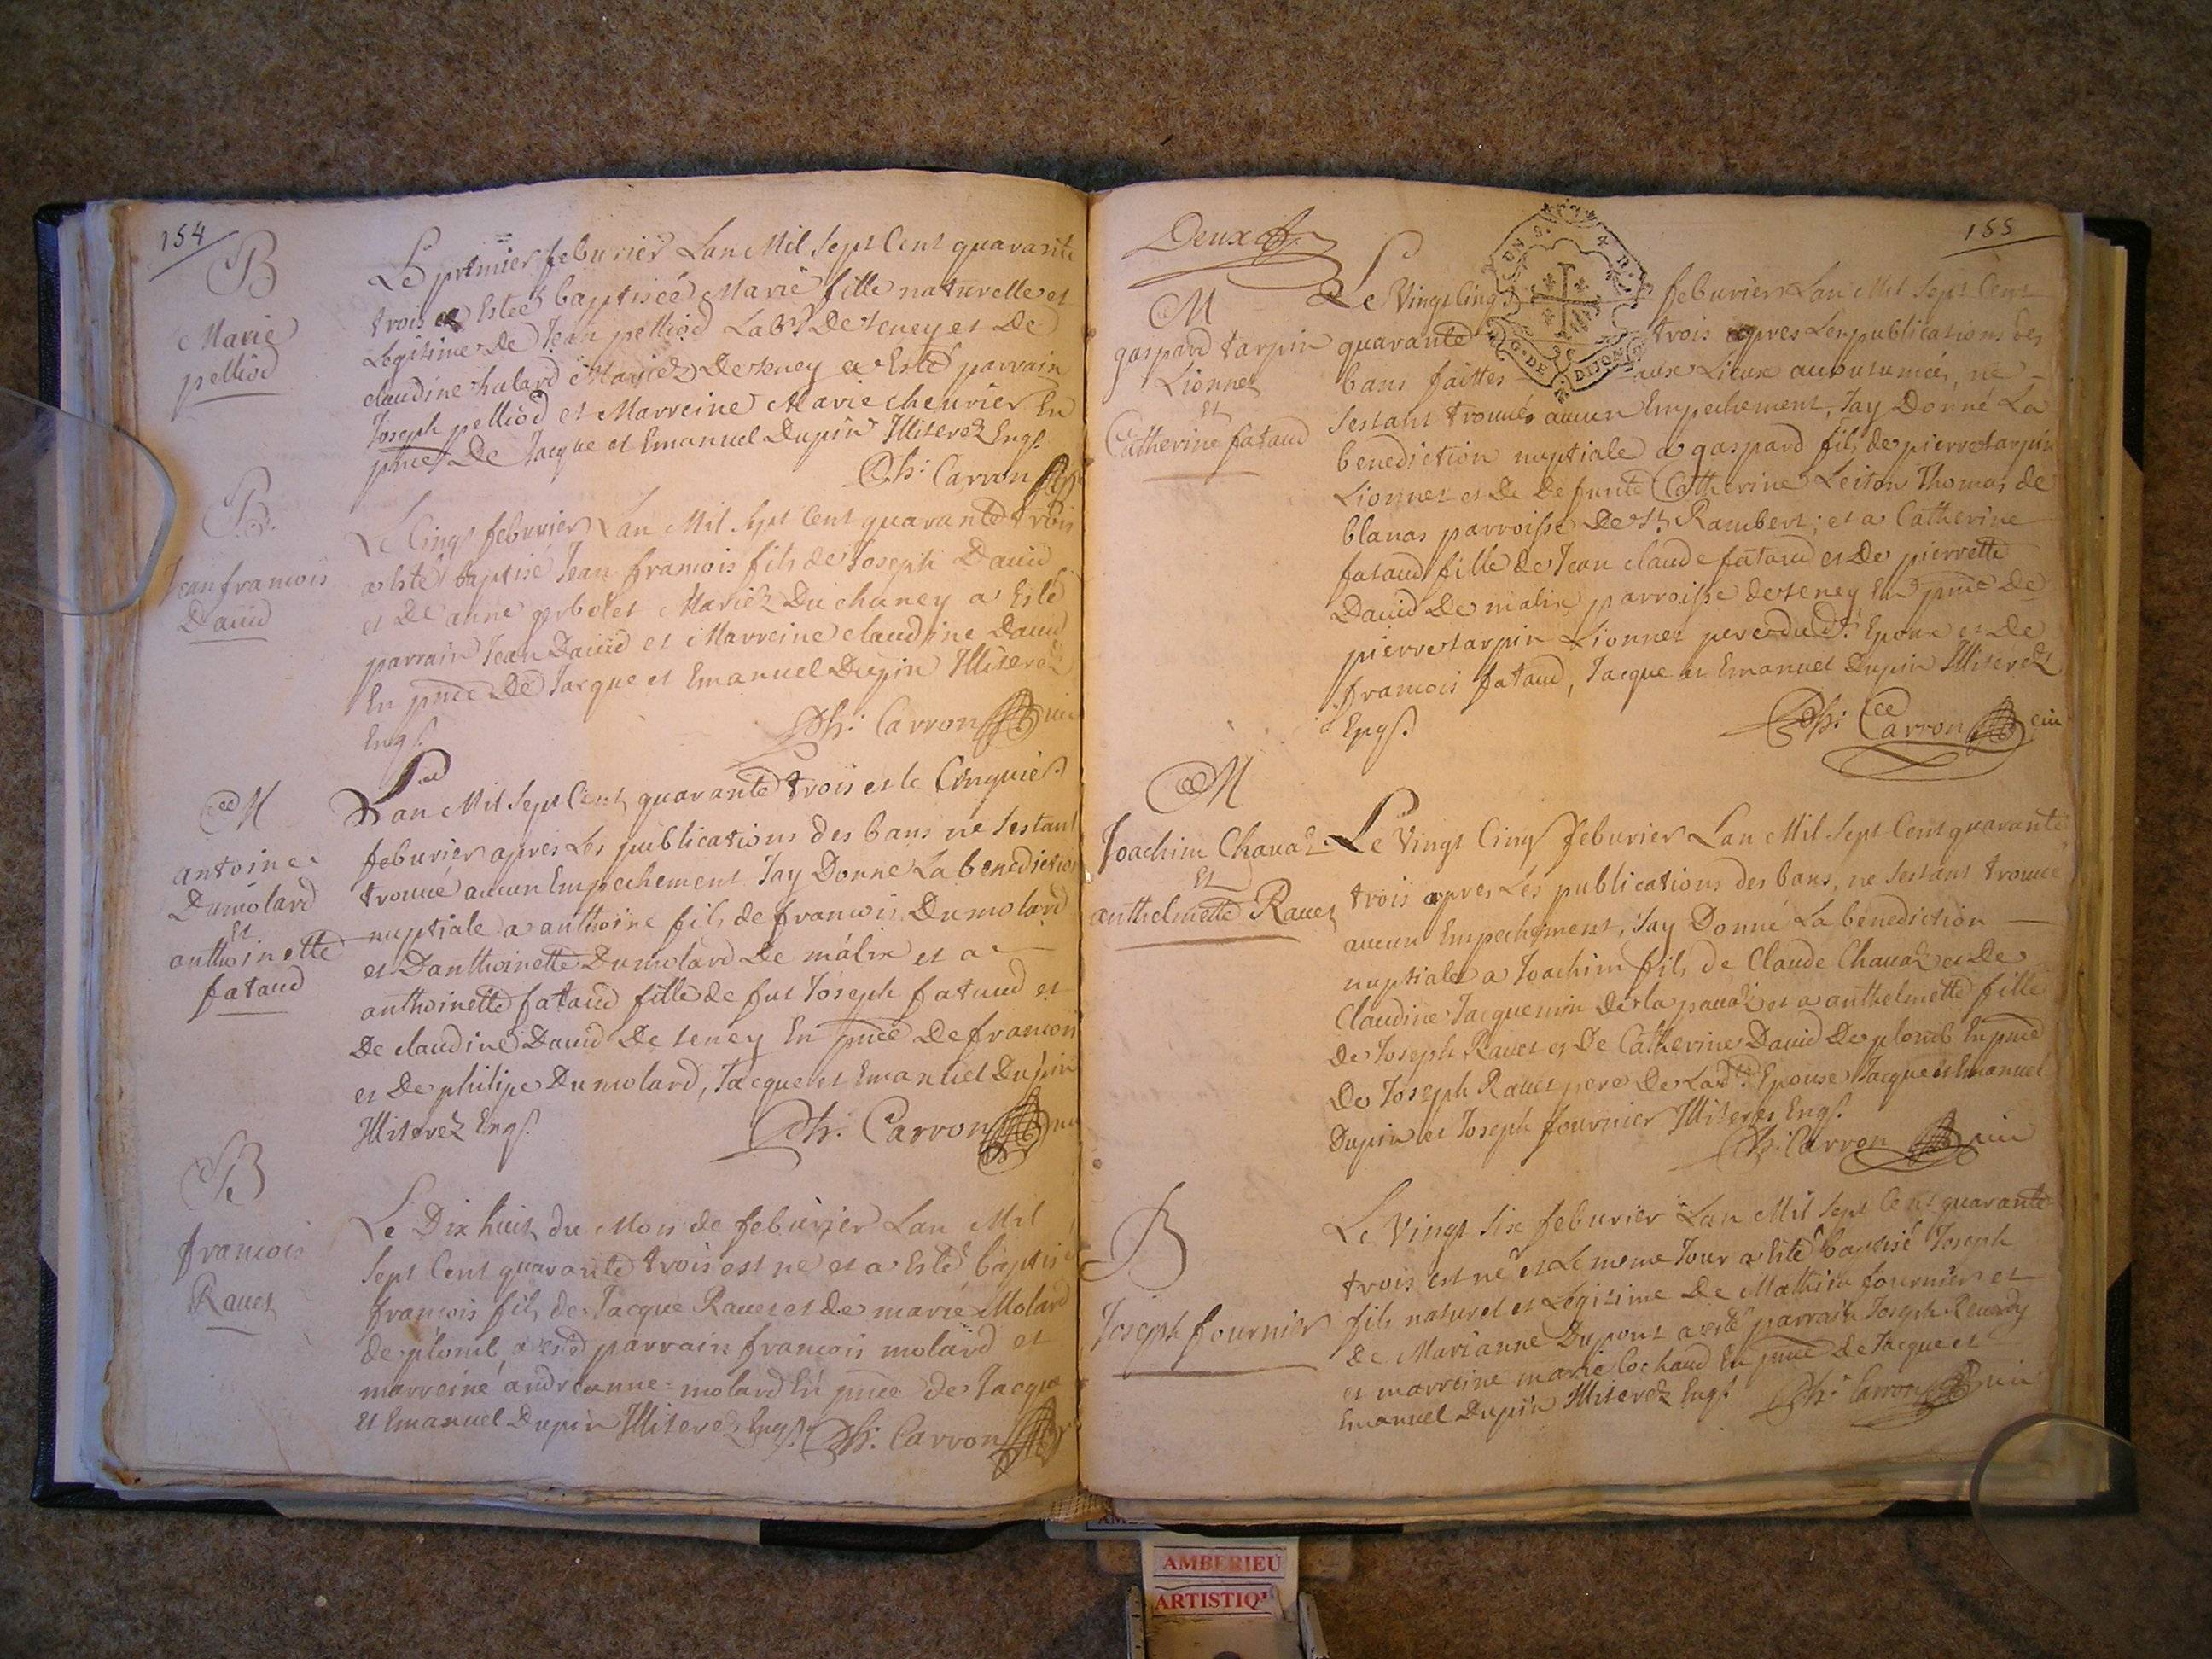 154
B
Marie
pelliod
Le premier feburier Lan Mil Sept Cent quarante
trois a Estée baptisée Marie fille naturelle et
Legitime De Jean pelliod Labr De teney et De
claudine halard Mariez De teney a Esté parrain
Joseph pelliod et Marreine Marie cheurier En
pnce De Jacque et Emanuel Dupin Illiterez Engs.
Ch: Carron
B.
Jean francois
Dauid
Le Cinqs feburier Lan Mil Sept Cent quarante trois
a Esté baptisé Jean francois fils de Joseph Dauid
et De anne gerbolet Mariez Du chaney a Esté
parrain Jean Dauid et Marreine claudine Dauid
En pnce De Jacque et Emanuel Dupin Illiterez
Engs.
Ch: Carron
M
antoine
Dumolard
Et
anthoinette
fataud
Lan Mil Sept Cent quarante trois et le Cinquies.
feburier apres Les publications des bans ne Sestant
trouué aucun Empechement Jay Donné La benediction
nuptiale a anthoine fils de francois Dumolard
et Danthoinette Dumolard De malix et a
anthoinette fataud fille de fut Joseph fataud et
De claudine Dauid De teney En pnce De francois
et De philipe Dumolard, Jacque et Emanuel Dupin
Illiterez Engs.
Ch: Carron
B
francois
Rauet
Le Dix huit du Mois de feburier Lan Mil
Sept Cent quarante trois est ne et a Esté baptisé
francois fils de Jacque Rauet et de marie Molard
de plomb a esté parrain francois molard et
marreine andréanne molard En pnce de Jacque
et Emanuel Dupin Illiterez Engs. Ch: Carron
Deux
155
G. DE DIJON
M
gaspard tarpin
Lionnet
Et
Catherine fataud
Le Vingt Cinqs feburier Lan Mil Sept Cent
quarante trois apres Les publications des
bans faittes aux Lieux accoutumés, ne
Sestant trouués aucun Empechement, Jay Donné La
benediction nuptiale a gaspard fils de pierre tarpin
Lionnet et De Defunte Catherine Leiton Thomas de
blanas parroisse De St. Rambert; et a Catherine
fataud fille de Jean claude fataud et De pierrette
Dauid De malix parroisse de teney En pnce De
pierre tarpin Lionnet pere dud. Epoux et De
francois fataud, Jacque et Emanuel Dupin Illiterez
Engs.
Ch: Carron
M
Joachim Chauaz
Et
anthelmette Rauet
Le Vingt Cinqs feburier Lan Mil Sept Cent quarante
trois apres Les publications des bans, ne Sestant trouué
aucun Empechement, Jay Donné La benediction
nuptiale a Joachim fils de Claude Chauaz et De
Claudine Jacquemin De la pauaz et a anthelmette fille
De Joseph Rauet et De Catherine Dauid De plomb En pnce
De Joseph Rauet pere De Lad. Epouse Jacque et Emanuel
Dupin et Joseph fournier Illiterez Engs.
Ch: Carron
B
Joseph fournier
Le Vingt Six feburier Lan Mil Sept Cent quarante
trois est né et Le meme Jour a Esté baptisé Joseph
fils naturel et Legitime De Mathieu fournier et
De Marianne Dupont a esté parrain Joseph
et marreine marie Cochaud En pnce De Jacque et
Emanuel Dupin Illiterez Engs. Ch: Carron
AMBERIEU
ARTISTIQ